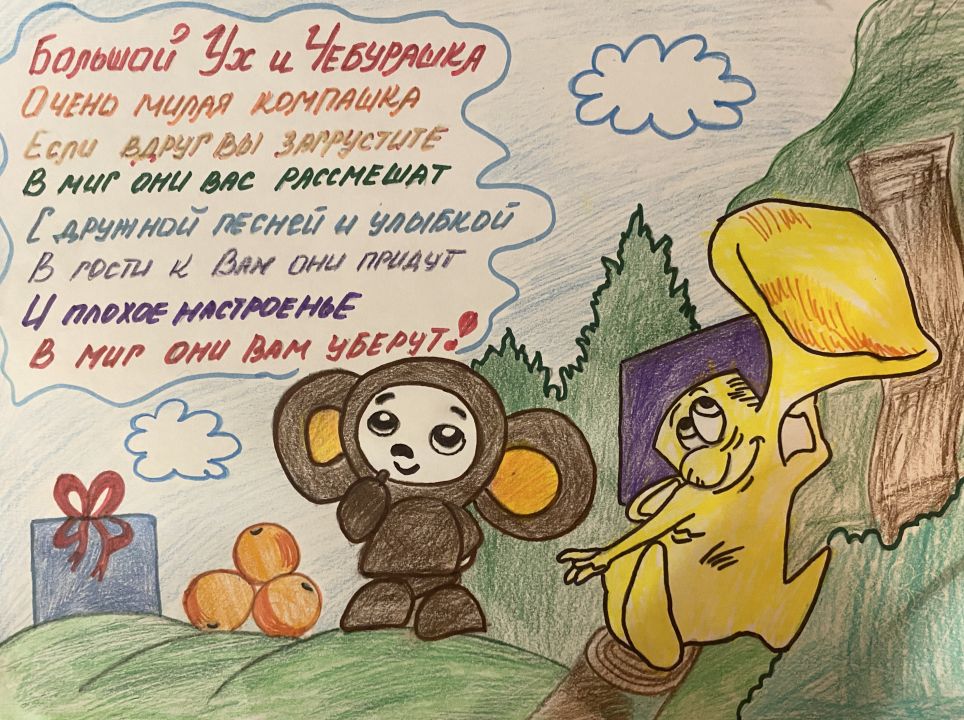 Большой Ух и Чебурашка
Очень милая компашка
Если вдруг вы загрустите
В миг они вас рассмешат
С дружной песней и улыбкой
В гости к Вам они придут
И плохое настроенье
В миг они Вам уберут!